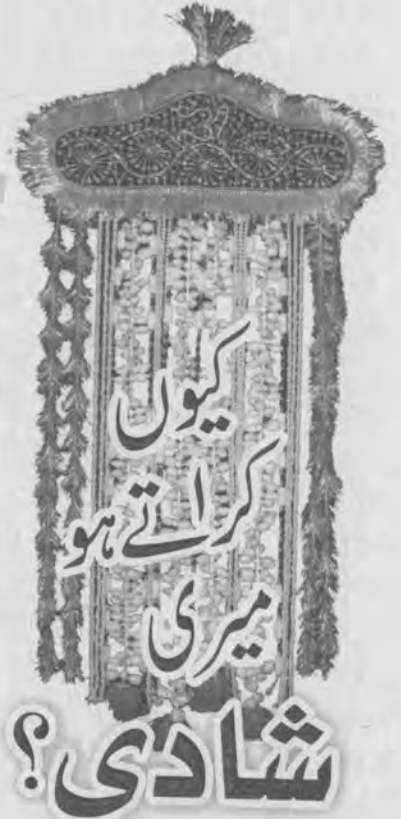 کیوں
کراتے ہو
میری
شادی؟